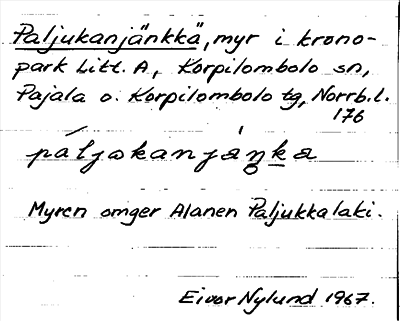 Paljukanjänkkä, myr i krono-
park Litt. A, Korpilombolo sn,
Pajala o. Korpilombolo tg, Norrb. l.
176
páljɷkanjáŋka
Myren omger Alanen Paljukkalaki.
Eivor Nylund 1967.